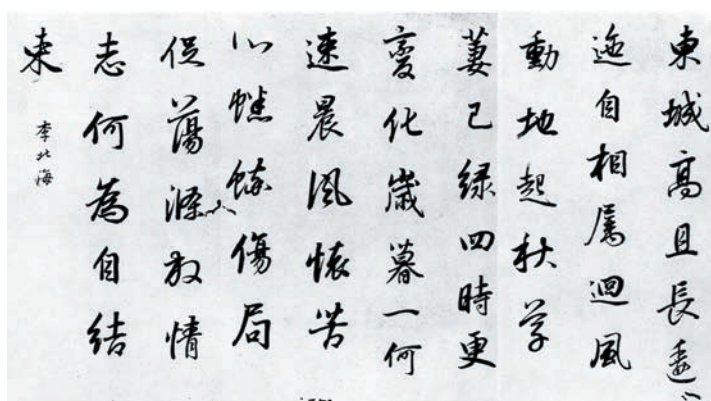 東城高且長逶
迤自相属迴風
動地起秋草
萋已緑四時更
變化歲暮一何
速晨風懷苦
心蟋蟀傷局
促蕩滌放情
志何為自結
束
李北海